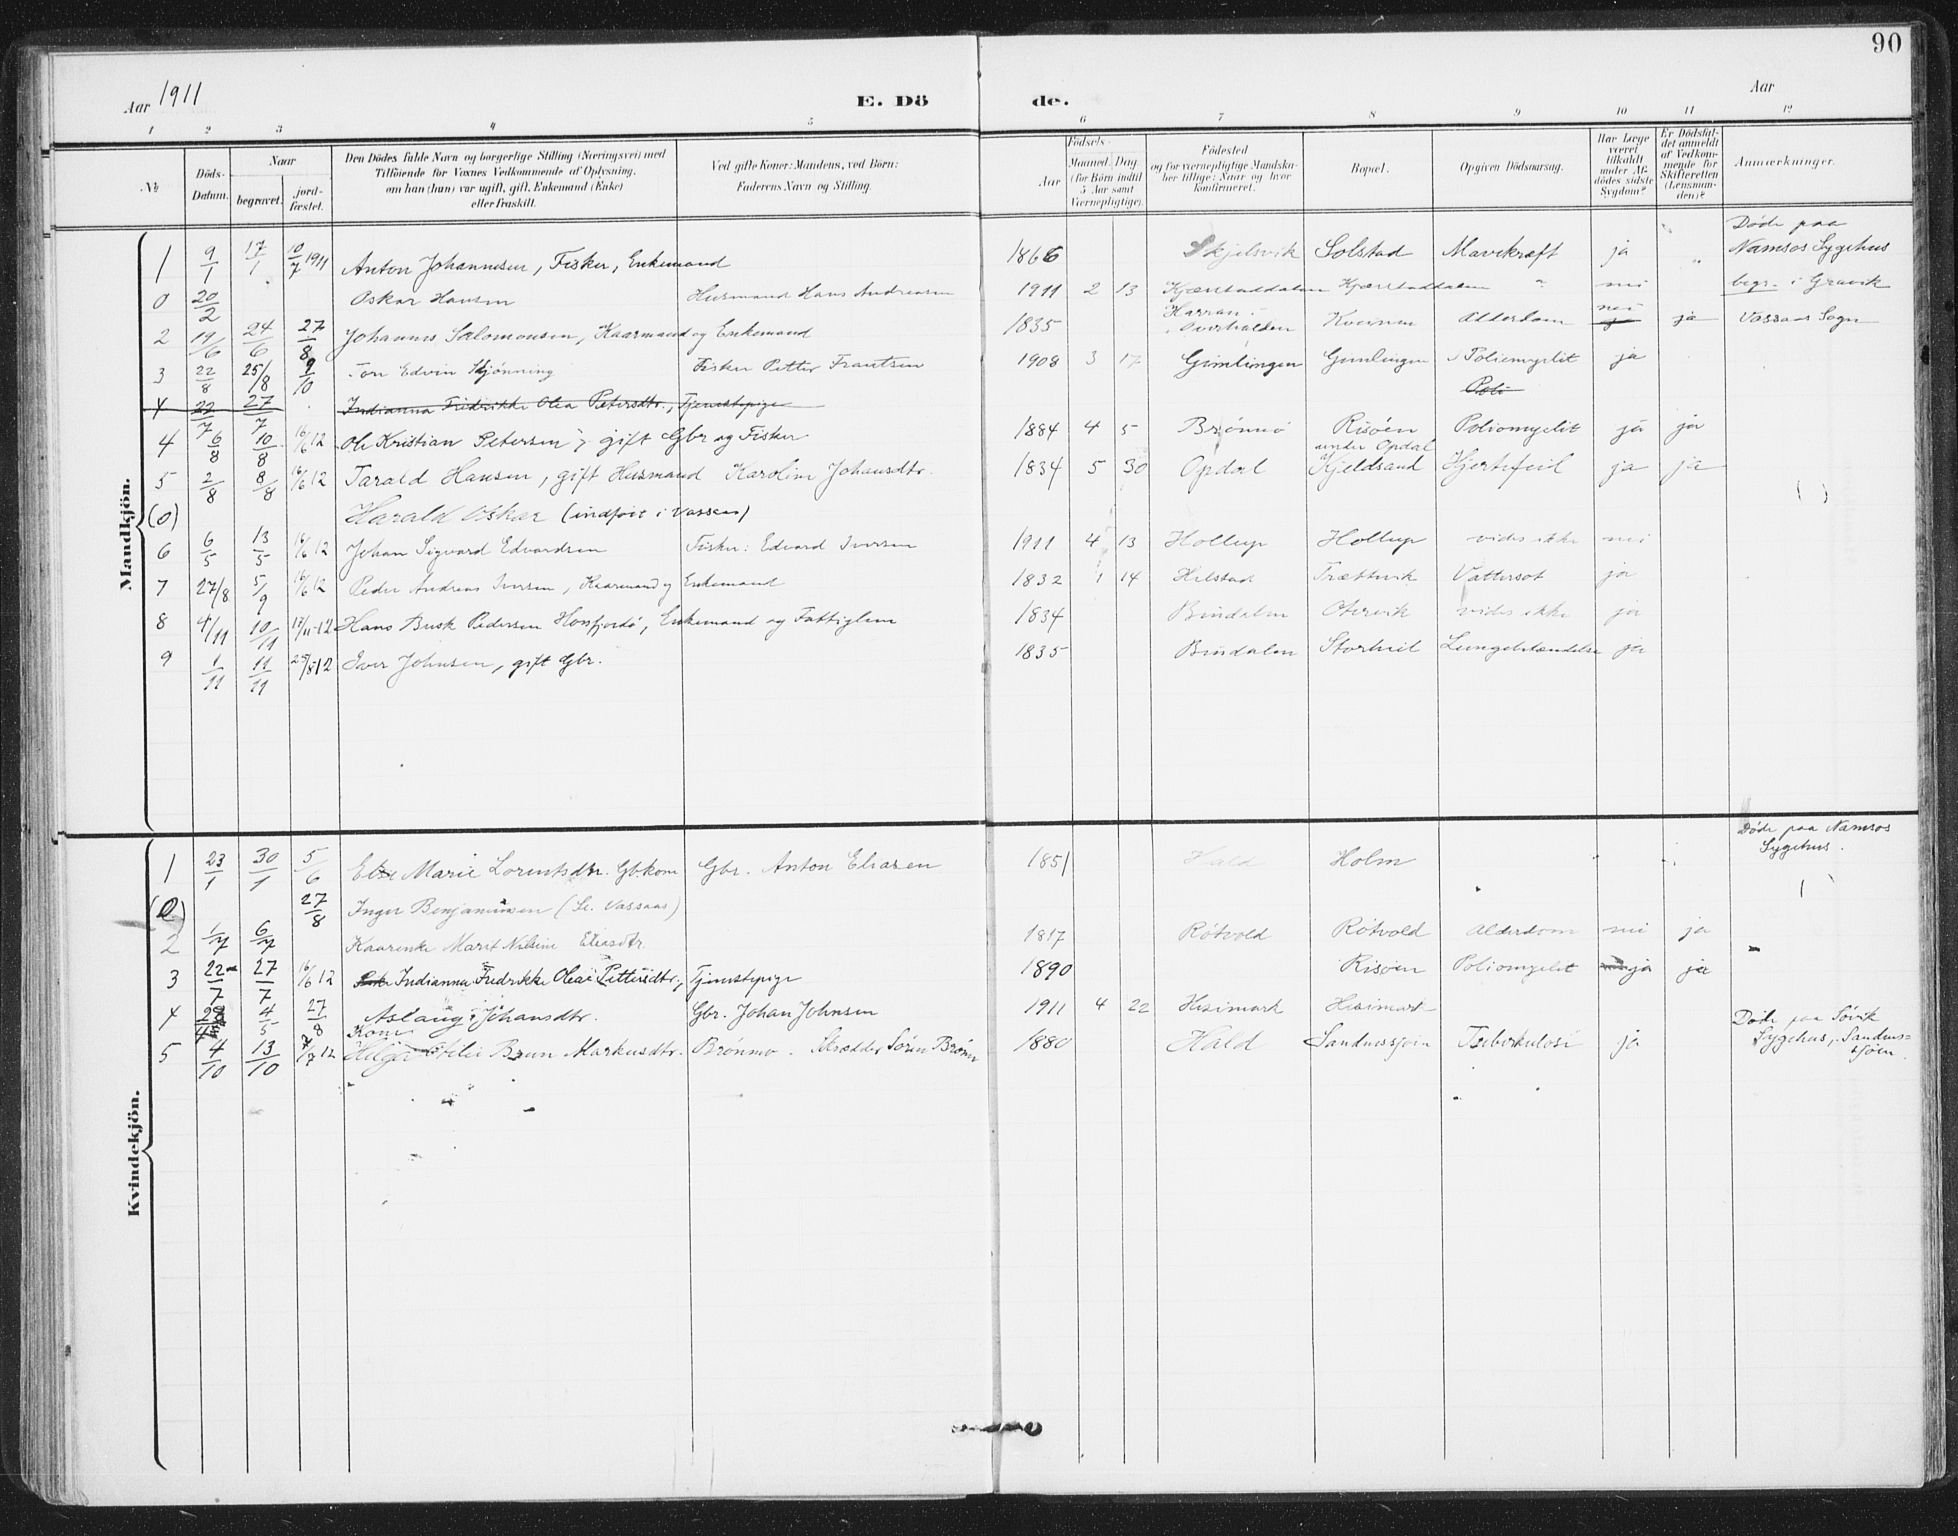 90
Aar 1911 E. Dö de. Aar
1 2 3 4 5 6 7 8 9 10 11 12
№ Döds-Datum. Naar begravet. jord-fæstet. Den Dödes fulde Navn og borgerlige Stilling (Næringsvei) med Tilföiende for Voxnes Vedkommende af Oplysning, om han (hun) var ugift, gift, Enkemand (Enke) eller fraskilt. Ved gifte Koner: Mandens, ved Börn: Faderens Navn og Stilling. Födsels- Aar Maaned. Dag. (for Börn indtil 5 Aar samt Værnepligtige). Födested og for værnepligtige Mandska-ber tillige: Naar og hvor konfirmeret. Bopæl. Opgiven Dödsaarsag. Har Læge været tilkaldt under Af-dödes sidste Sygdom? Er Dödsfal-det anmeldt af Vedkom-mende for Skifteretten (Lensman-den)? Anmærkninger.
Mandkjön.
1 9/1 17/1 10/7 1911 Anton Johannesen, Fisker, Enkemand 1866 Skjelsvik Solstad Mavekræft ja " Døde paa Namsos Sygehus
0 20/2 Oskar Hansen Husmand Hans Andreasen 1911 2 13 Kjærstaddalen Kjærstaddalen " nei begr. i Gravik
2 19/6 24/6 27/8 Johannes Salomonsen, Kaarmand og Enkemand 1835 Harran i Overhalden Kveinen Alderdom nei ja ja Vassaas Sogn
3 22/8 25/8 9/10 Tore Edvin Skjønning Fisker Petter Frantsen 1908 3 17 Gimlingen Gimlingen Poliomyelit ja
Poli
4 22/7 27/7 Indianna Fredrikke Olea Petersdtr., Tjenestepige
4 6/8 10/8 16/6 12 Ole Kristian Petersen, gift Gbr og Fisker 1884 4 5 Brønnø Risøen Poliomyelit ja ja
5 2/8 8/8 16/6 12 Tarald Hansen, gift Husmand Karoline Johansdtr. 1834 5 30 Opdal Kjeldsand under Opdal Hjertefeil ja ja
(0) Harald Oskar (indført i Vassaas) ( )
6 6/5 13/5 16/6 12 Johan Sigvard Edvardsen Fisker: Edvard Iversen 1911 4 13 Hollup Hollup vides ikke nei
7 27/8 5/9 16/6 12 Peder Andreas Iversen, Kaarmand og Enkemand 1832 1 14 Helstad Trættevik Vattersot ja
8 4/11 10/11 17/11-12 Hans Busk Pedersen Horsfjordø, Enkemand og Fattiglem 1834 Bindalen Otervik vides ikke ja
9 1/11 11/11 25/8 12 Iver Johnsen, gift Gbr. 1835 Bindalen Storheil Lungebetændelse ja
Kvindekjön.
1 23/1 30/1 5/6 Else Marie Lorentsdtr. Gbkone Gbr. Anton Eliasen 1851 Hald Holm Døde paa Namsos Sygehus.
(0) 27/8 Inger Benjaminsen (Se. Vassaas) ( )
2 1/7 6/7 Kaarenke Marit Nilsine Eliasdtr. 1817 Røtvold Røtvold Alderdom nei ja
3 22/7 27/7 16/6 12 Indianna Fredrikke Olea Pettersdtr, Tjenestepige 1890 Risøen Poliomyelit ja ja
4 28/4 4/5 27/8 Aslaug Johansdtr. Gbr. Johan Johnsen 1911 4 22 Heimark Heimark
5 4/10 13/10 7/7 12 Kone Helga Otilie Brun Markusdtr. Brønmo. Skrædder Søren Brønmo 1880 Hald Sandnessjøen Tuberkulosi ja Døde paa Søvik Sygehus, Sandnes-sjøen.